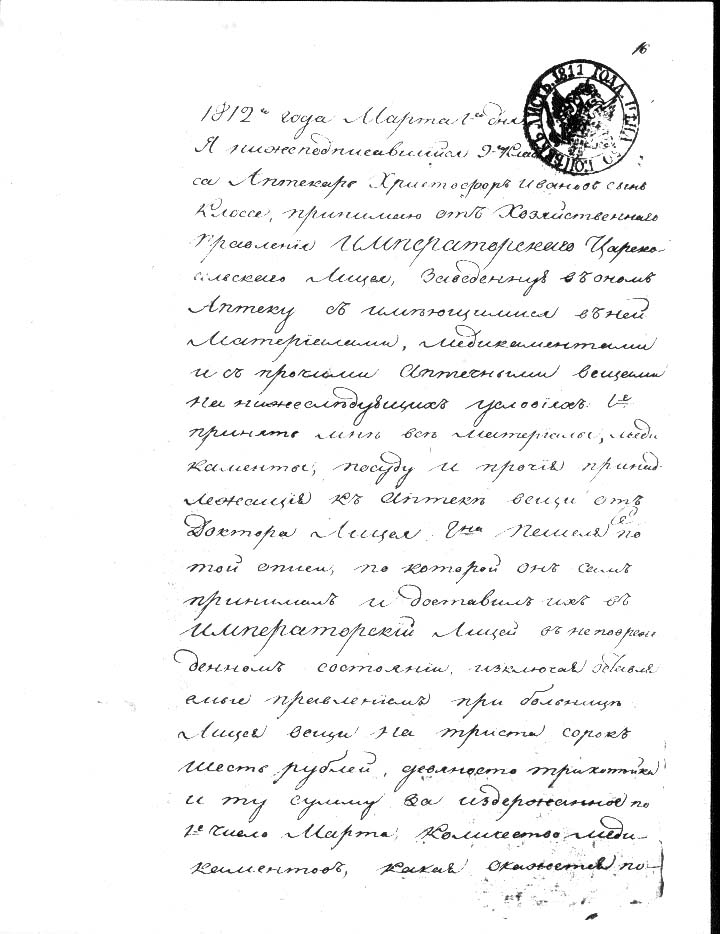 16
ЛИСТЪ 1811 ГОДА. ЦѢНА 50 КОПѢЕКЪ
1812го года Марта 1го дня
Я нижеподписавшійся 9го Клас
са Аптекарь Христофоръ Ивановъ сынъ
Клоссе, принимаю отъ Хозяйственнаго
Правленія ИМПЕРАТОРСКАГО Царско-
сельскаго Лицея, Заведенную въ ономъ
Аптеку съ имѣющимися въ ней
Матеріалами, Медикаментами
и съ прочими Аптечными вещами
на нижеслѣдующихъ условіяхъ: 1е
принять мнѣ всѣ матеріалы, меди
каменты, посуду и прочія принад-
лежащія къ Аптекѣ вещи отъ
Доктора Лицея Гна Пешеля по
той описи, по которой онъ самъ
принималъ и доставилъ ихъ въ
ИМПЕРАТОРСКІЙ Лицей въ неповреж
денномъ состояніи, изключая оставля
емые правленіемъ при больницѣ
Лицея вещи на триста сорокъ
шесть рублей, девяносто три копѣйки
и ту сумму за издержанное по
1е число Марта, количество меди-
каментовъ, какая окажется по-